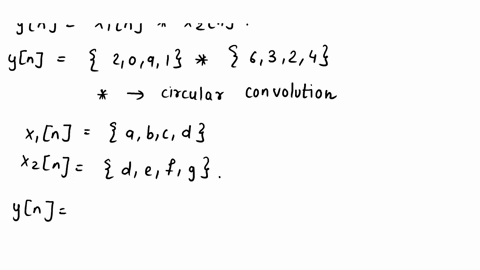 y[n] = x₁[n] * x₂[n].
y[n] = { 2,0,9,1} * { 6,3,2,4}
* → circular convolution
x₁[n] = { a,b,c,d}
x₂[n] = { d,e,f,g}.
y[n] =